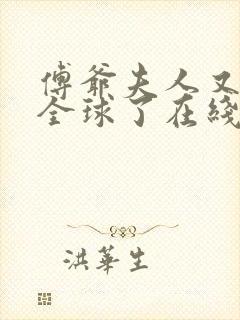 傅爺夫人又
全球了在綫
洪華生